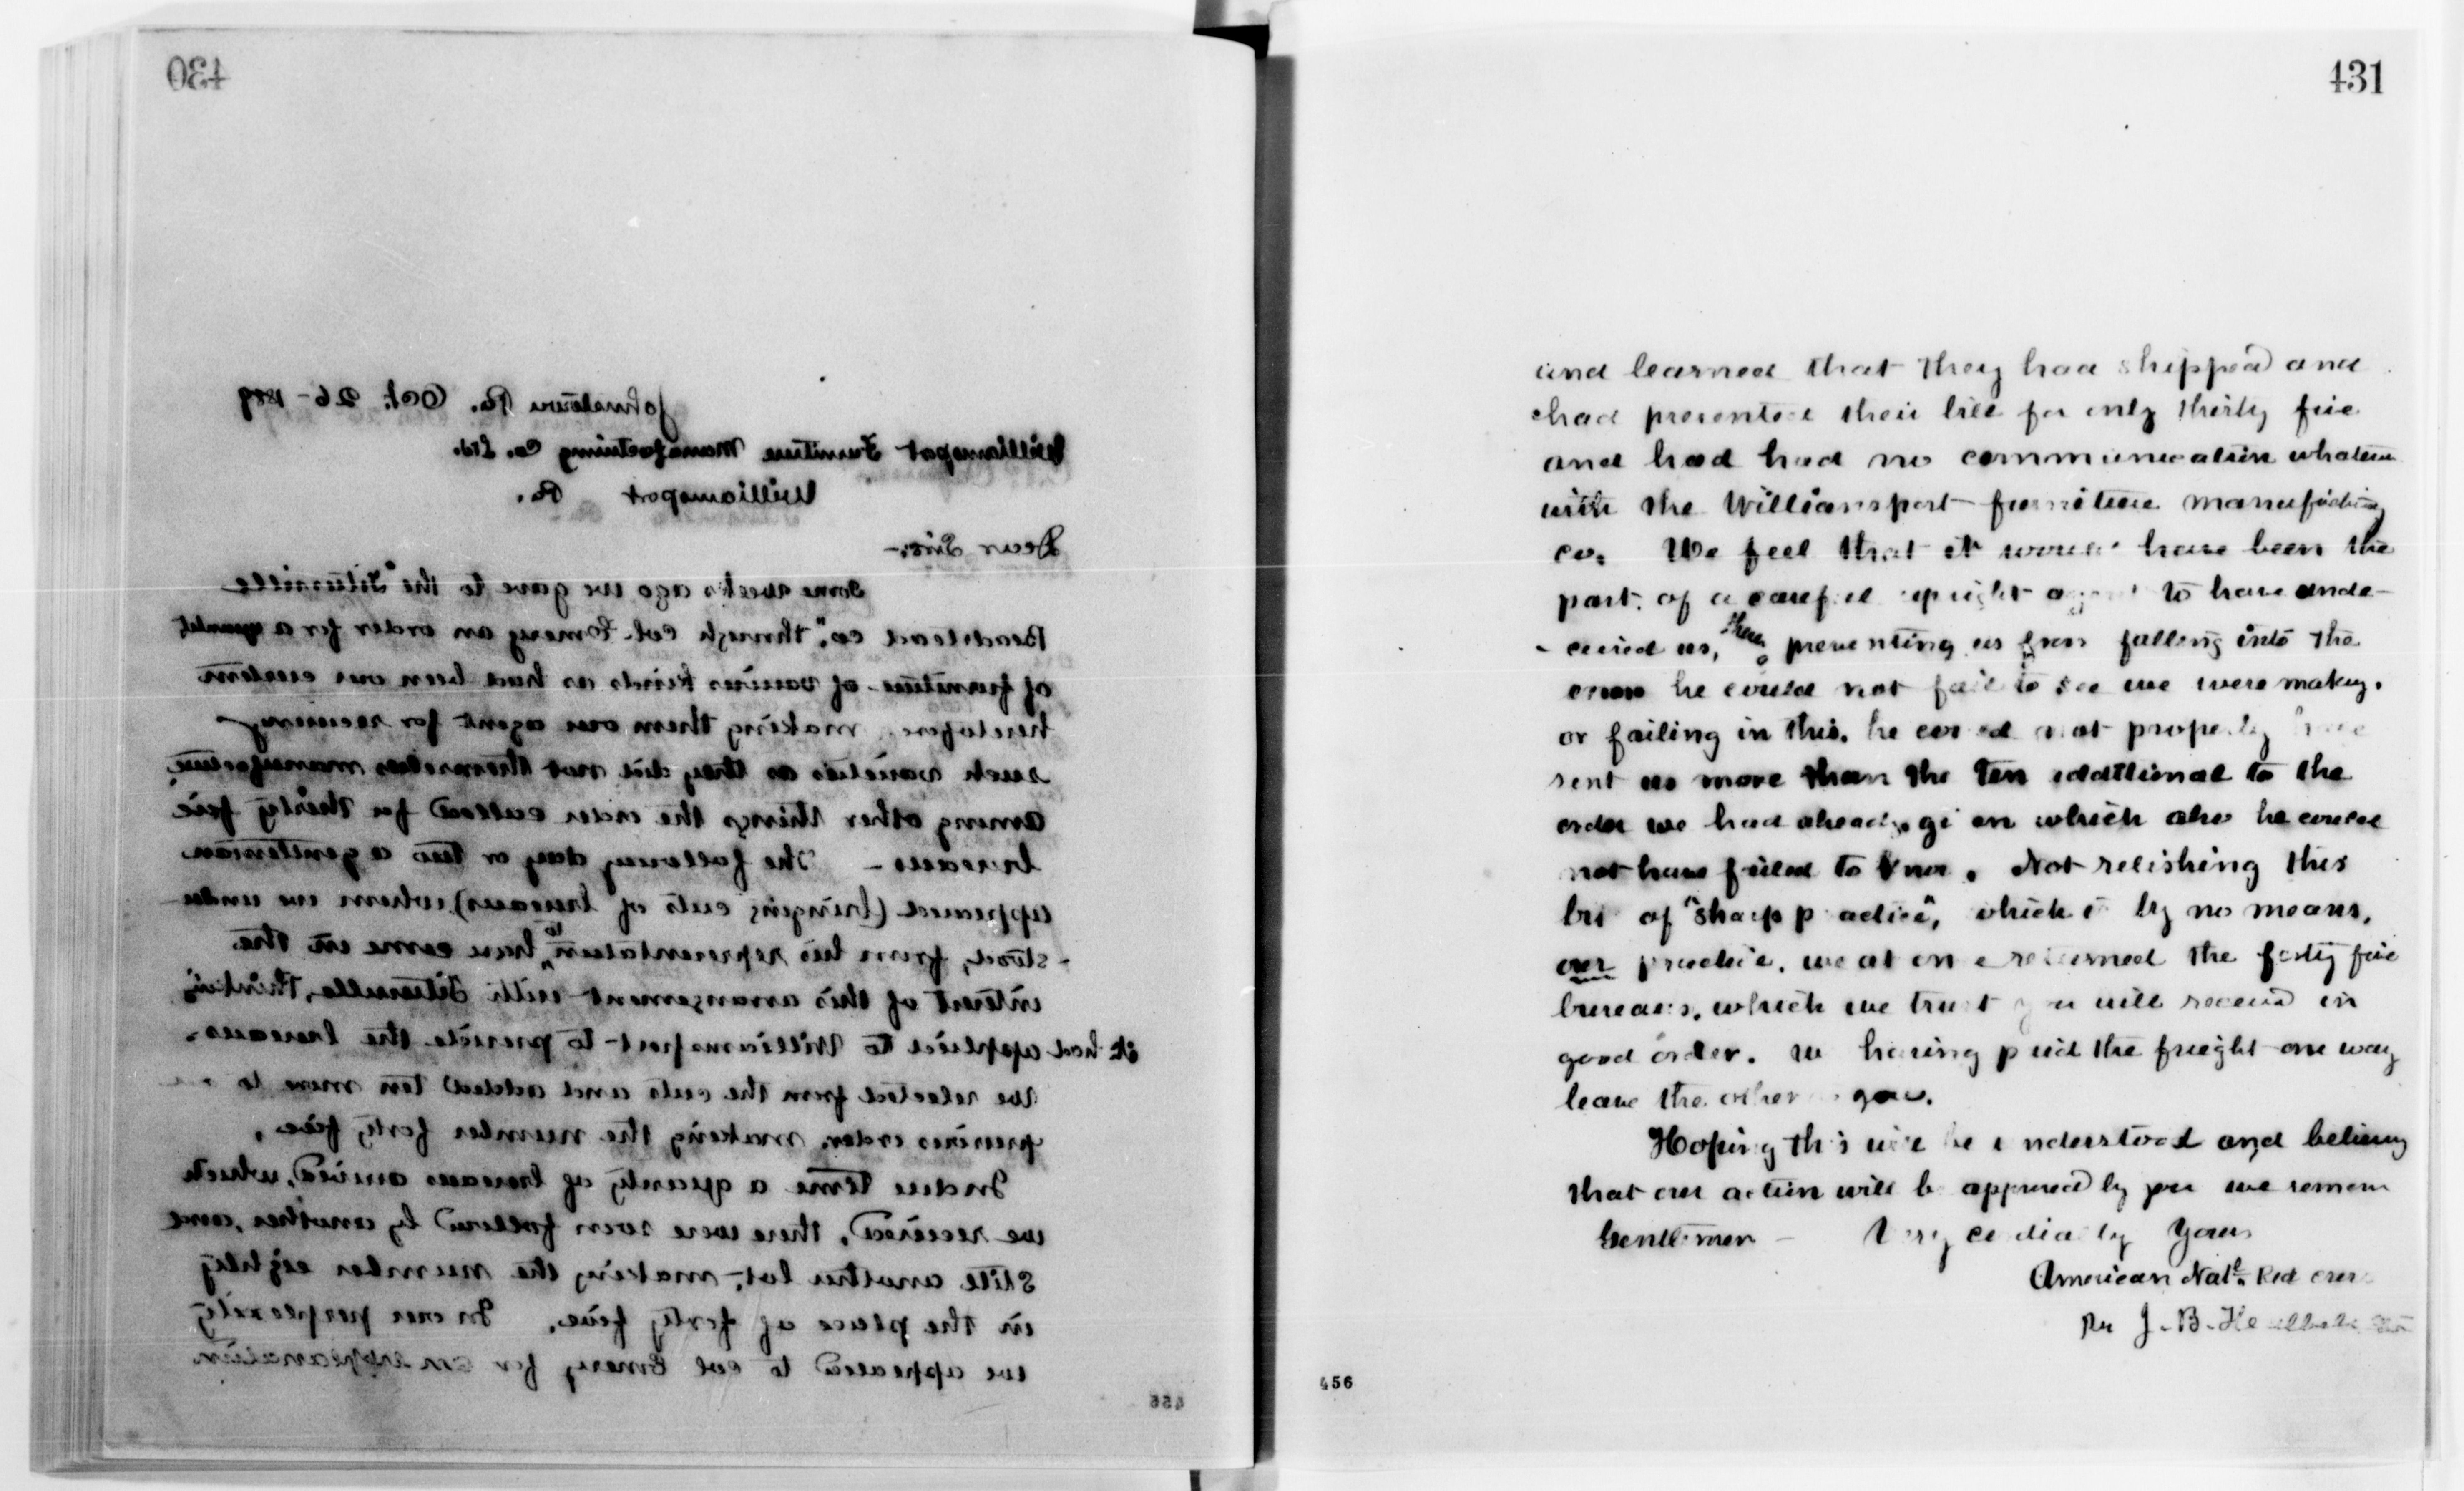 430
Johnstown Pa. Oct. 26 - 1889
Williamsport Furniture Manufacturing Co. Ltd.
Williamsport Pa.
Dear Sirs:-
Some weeks ago we gave to the "Titusville
Beadstead co." through col. Emery an order for a
of furniture of various kinds as had been our custom
heretofore, making them our agent for securing
such varieties as they did not themselves manufacture,
among other things the order called for thirty five
bureaus - The following day or two a gentleman
appeared (bringing cuts of bureaus) whom we under
- stood, from his representation, to have come in the
interest of this arrangement with Titusville, thinking
it had applied to Williamsport to provide the bureaus.
We selected from the cuts and added ten more to
previous order, making the number forty five.
In due time a quanty of bureaus arrived, which
we received, these were soon followed by another, and
still another lot, making the number eighty
in the place of forty five. In our perplexity
we appealed to col Emery for an explanation
455
431
and learned that they had shipped and
had presented their bill for only thirty five
and had had no communication whatever
with the Williamsport furniture manufacturing
co. We feel that it would have been the
part of a careful upright agent to have unde-
- ceived us, preventing us from falling into the
error he could not fail to see we were making.
or failing in this, he could not properly have
sent us more than the ten additional to the
order we had already given which also he could
not have failed to know. Not relishing this
bit of "sharp practice", which is by no means,
our practice, we at once returned the forty five
bureaus, which we trust you will receive in
good order. We having paid the freight one way
leave the other to you.
Hoping this will be understood and believing
that our action will be approved by you we remain
Gentlemen - Very cordially Yours
American Natl. Red cross
Per J. B. Hubbell
456